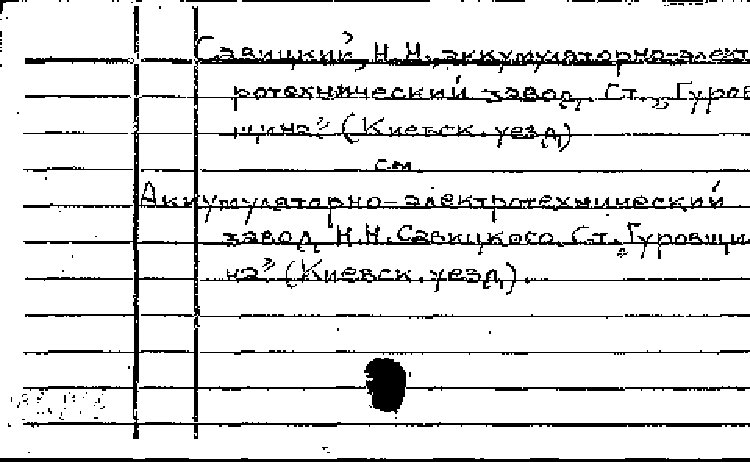 Савицкий, Н.Н., аккумуляторно-элект
ротехнический завод, Ст. „Гуров
щина" (Киевск. уезд)
см
Аккумуляторно-электротехнический
завод Н.Н. Савицкого. Ст. „Гуровщи
на" (Киевск. уезд).